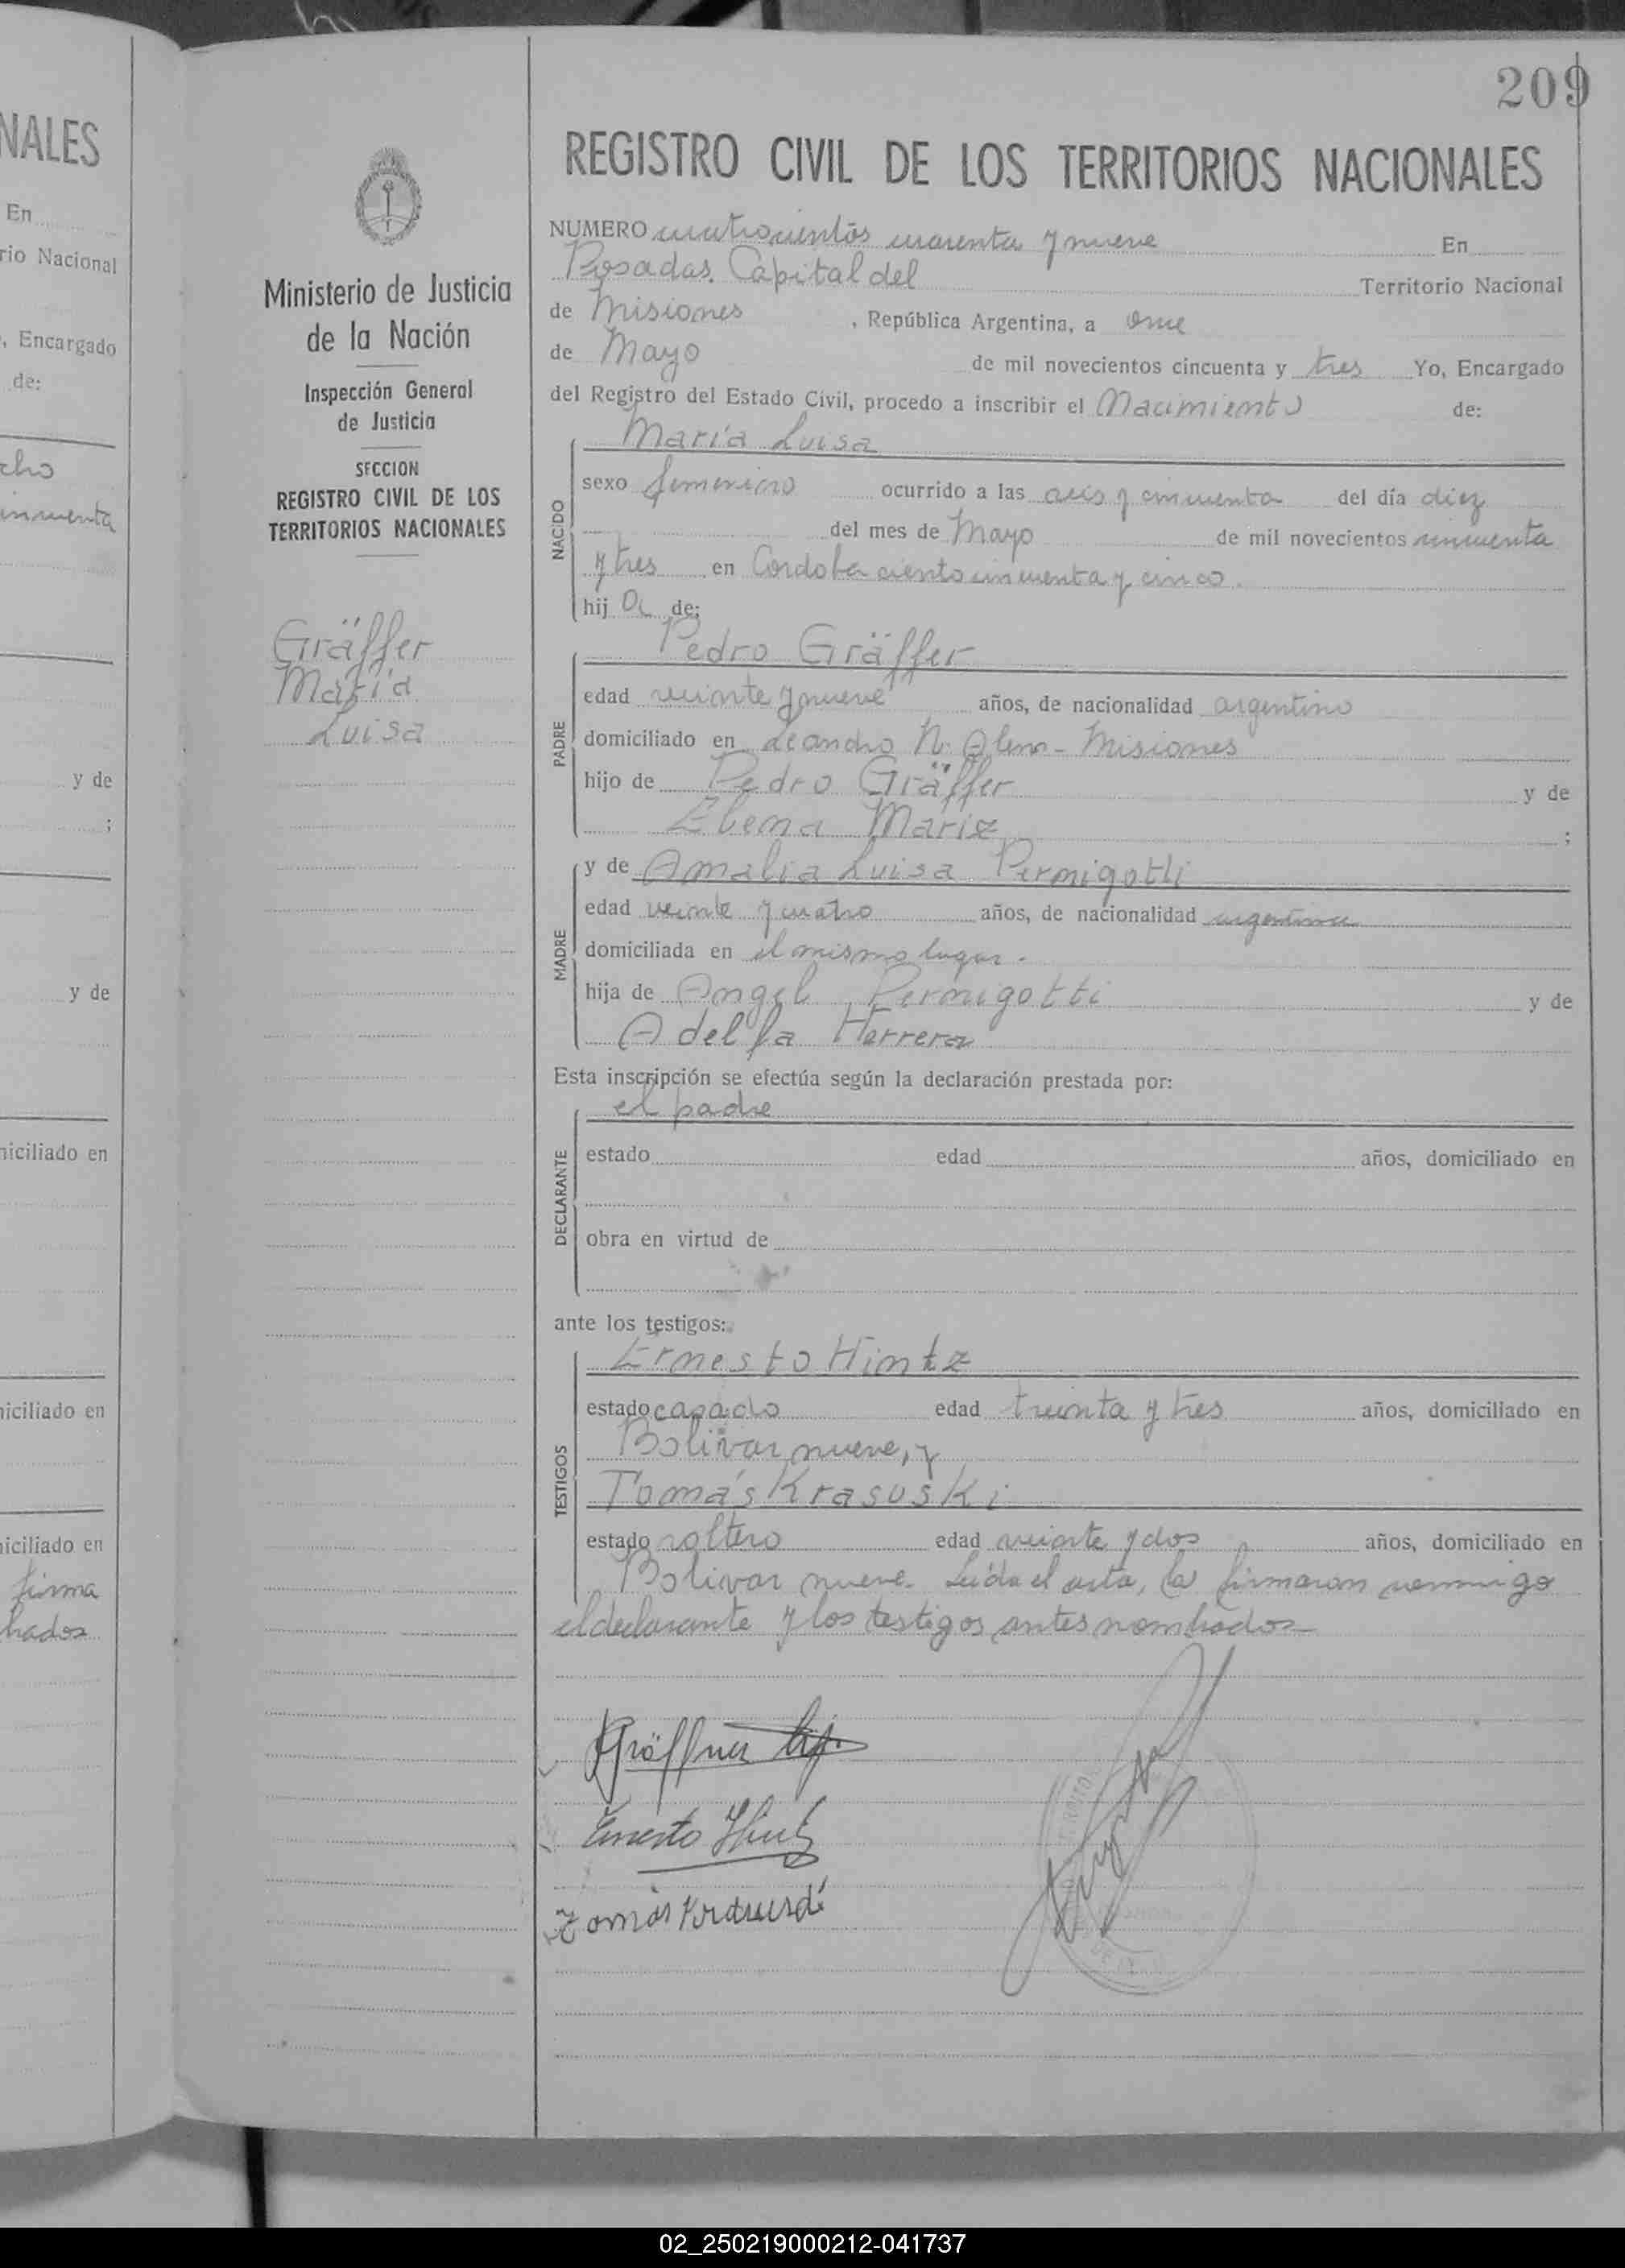 NALES
En
rio Nacional
, Encargado
de:
cho
inmuenta
y de
;
y de
niciliado en
niciliado en
niciliado en
firma
hados
Ministerio de Justicia
de la Nación
Inspección General
de Justicia
SECCION
REGISTRO CIVIL DE LOS
TERRITORIOS NACIONALES
Gräffer
María
Luisa
209
REGISTRO CIVIL DE LOS TERRITORIOS NACIONALES
NUMERO cuatrocientos cuarenta y nueve En
Posadas. Capital del Territorio Nacional
de Misiones , República Argentina, a once
de Mayo de mil novecientos cincuenta y tres Yo, Encargado
del Registro del Estado Civil, procedo a inscribir el Nacimiento de:
María Luisa
NACIDO
sexo femenino ocurrido a las seis y cincuenta del día diez
del mes de Mayo de mil novecientos cincuenta
y tres en Cordoba ciento cincuenta y cinco.
hij a de:
Pedro Gräffer
PADRE
edad veinte y nueve años, de nacionalidad argentino
domiciliado en Leandro N. Alem - Misiones
hijo de Pedro Gräffer y de
Elena Mariz ;
MADRE
y de Amalia Luisa Permigotti
edad veinte y cuatro años, de nacionalidad argentina
domiciliada en el mismo lugar.
hija de Angel Permigotti y de
Adelfa Herrera
Esta inscripción se efectúa según la declaración prestada por:
el padre
DECLARANTE
estado edad años, domiciliado en
obra en virtud de
ante los testigos:
Ernesto Hintz
TESTIGOS
estado casado edad treinta y tres años, domiciliado en
Bolivar nueve, y
Tomás Krasuski
estado soltero edad veinte y dos años, domiciliado en
Bolivar nueve. Leída el acta, la firmaron conmigo
el declarante y los testigos antes nombrados
Gräffner hijo
Ernesto Hintz
Tomás Krasuski
02_250219000212-041737